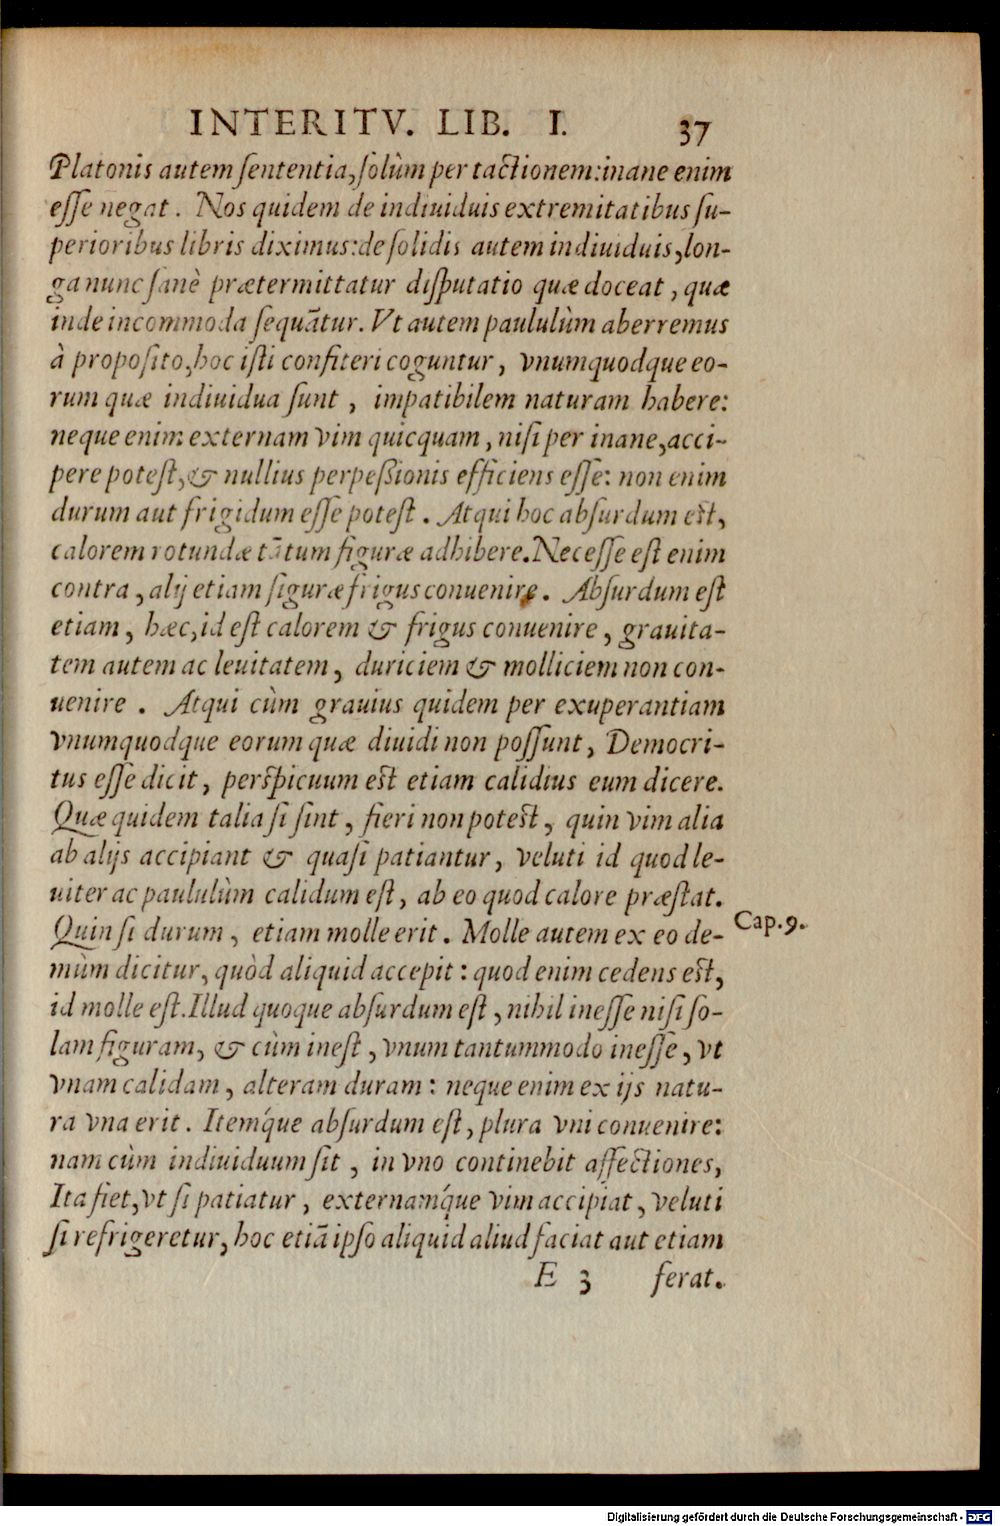 INTERITV. LIB. I. 37
Platonis autem ſententia, ſolùm per tactionem: inane enim
eſſe negat. Nos quidem de indiuiduis extremitatibus ſu-
perioribus libris diximus: de ſolidis autem indiuiduis, lon-
ga nunc ſanè prætermittatur diſputatio quæ doceat, quæ
inde incommoda ſequãtur. Vt autem paululùm aberremus
à propoſito, hoc iſti confiteri coguntur, vnumquodque eo-
rum quæ indiuidua ſunt, impatibilem naturam habere:
neque enim externam vim quicquam, niſi per inane, acci-
pere poteſt, & nullius perpeßionis efficiens eſſe: non enim
durum aut frigidum eſſe poteſt. Atqui hoc abſurdum eſt,
calorem rotundæ tãtum figuræ adhibere. Neceſſe eſt enim
contra, alij etiam figuræ frigus conuenire. Abſurdum eſt
etiam, hæc, id eſt calorem & frigus conuenire, grauita-
tem autem ac leuitatem, duriciem & molliciem non con-
uenire. Atqui cùm grauius quidem per exuperantiam
vnumquodque eorum quæ diuidi non poſſunt, Democri-
tus eſſe dicit, perſpicuum eſt etiam calidius eum dicere.
Quæ quidem talia ſi ſint, fieri non poteſt, quin vim alia
ab alijs accipiant & quaſi patiantur, veluti id quod le-
uiter ac paululùm calidum eſt, ab eo quod calore præſtat.
Quin ſi durum, etiam molle erit. Molle autem ex eo de-
Cap. 9.
mùm dicitur, quòd aliquid accepit: quod enim cedens eſt,
id molle eſt. Illud quoque abſurdum eſt, nihil ineſſe niſi ſo-
lam figuram, & cùm ineſt, vnum tantummodo ineſſe, vt
vnam calidam, alteram duram: neque enim ex ijs natu-
ra vna erit. Itemq́ue abſurdum eſt, plura vni conuenire:
nam cùm indiuiduum ſit, in vno continebit affectiones,
Ita fiet, vt ſi patiatur, externamq́ue vim accipiat, veluti
ſi refrigeretur, hoc etiã ipſo aliquid aliud faciat aut etiam
E 3 ferat.
Digitalisierung gefördert durch die Deutsche Forschungsgemeinschaft - DFG